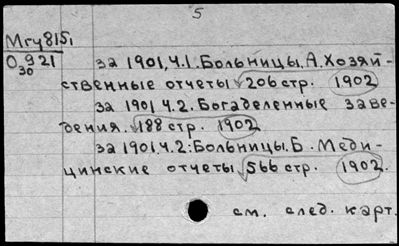 5
Мгу815,
О 921
30
за 1901,ч.1.Больницы.А.Хозяй-
ственные отчеты √206 стр. 1902
за 1901 ч.2. Богаделенные заве-
дения. √188 стр. 1902
за 1901,ч.2:Больницы.Б. Меди-
цинские отчеты √566 стр. 1902.
см. след. карт.